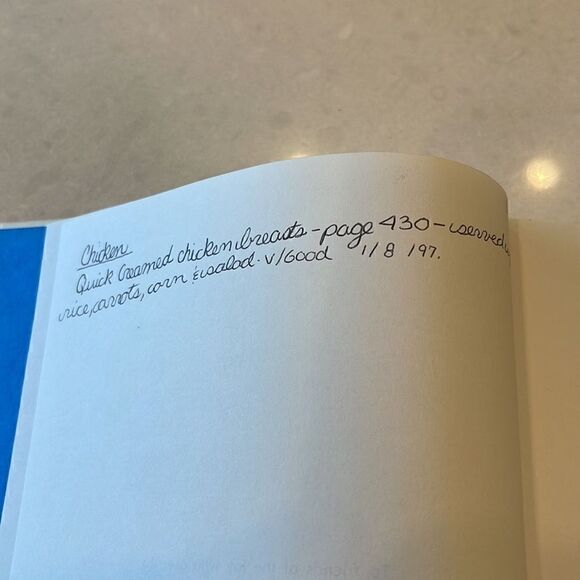 Chicken
Quick Creamed chicken breasts - page 430 - served
rice, carrots, corn & salad. V/Good 1/8/97.